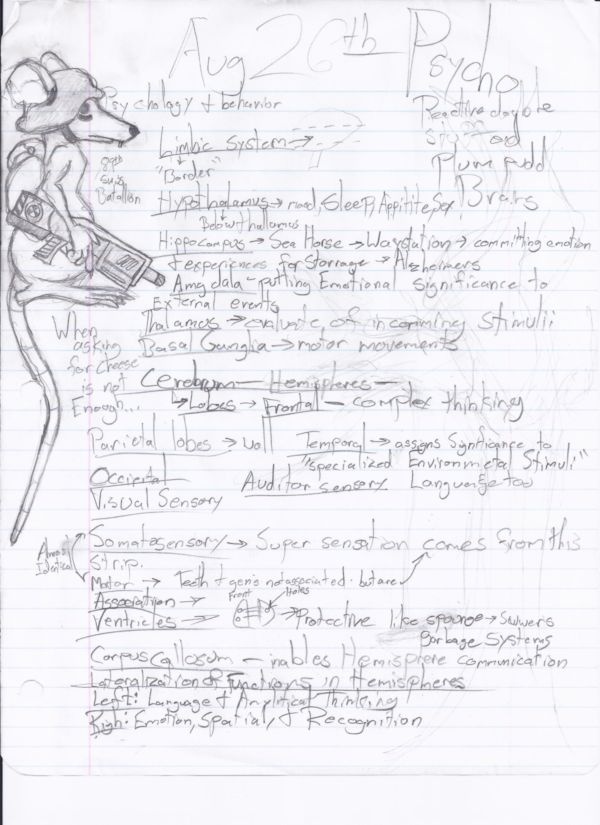 Aug 26th Psycho
Psychology & behavior
Limbic System →
"Border"
Hypothalamus → mood, Sleep, Appitite, Sex,
Below thallamus
Hippocampus → Sea Horse → Waystation → committing emotion
& experiences for Storrage → Alzheimers
Amgdala - putting Emotional significance to
External events
Thalamus → evaluate of incomming Stimuli
Basal Ganglia → motor movements
Cerebrum - Hemispheres -
→ Lobes → Frontal - complex thinking
Parietal lobes → Temporal → assigns Significance to
"specialized Enviornmetal Stimuli"
Occipital Auditor sensory Language too
Visual Sensory
Somatosensory → Super sensation comes from this
Strip.
Motor → Teeth & not associated but are
Association →
Ventricles → Protective like sponge →
Front
Holes
garbage Systems
Corpus Callosum - inables Hemisphere communication
Lateralization of Functions in Hemispheres
Left: Language & Anylitical Thinking
Righ: Emotion, Spatial, & Recognition
Plum pudd
Brats
Batallion
When
asking
for cheese
is not
Enough...
Identical